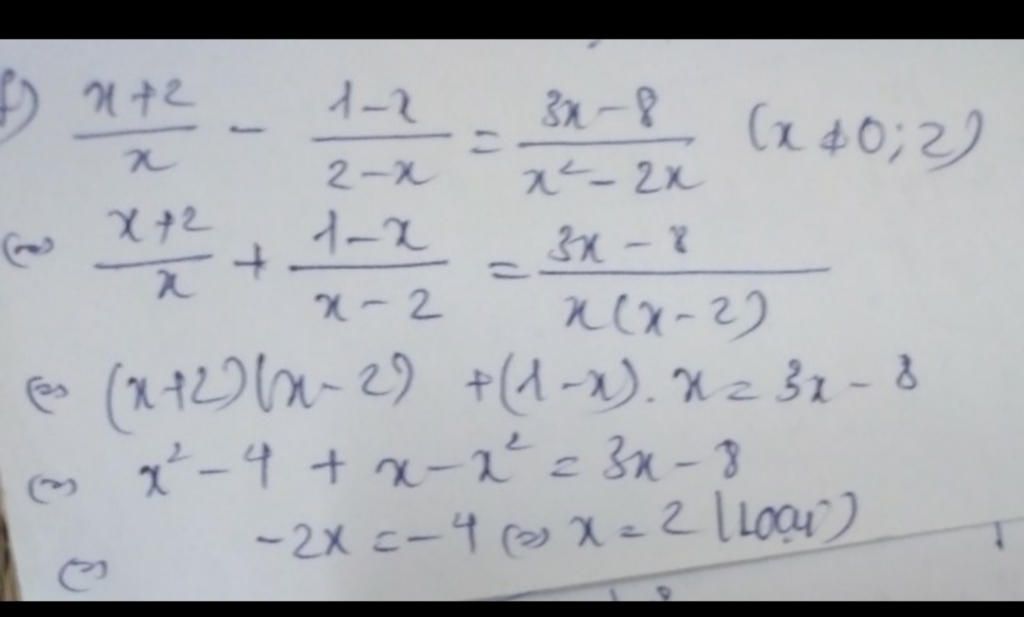 f) \frac{x+2}{x} - \frac{1-x}{2-x} = \frac{3x-8}{x^2-2x} (x ≠ 0; 2)
⇔ \frac{x+2}{x} + \frac{1-x}{x-2} = \frac{3x-8}{x(x-2)}
⇔ (x+2)(x-2) + (1-x). x = 3x - 8
⇔ x² - 4 + x - x² = 3x - 8
⇔ -2x = -4 ⇔ x = 2 (Loại)